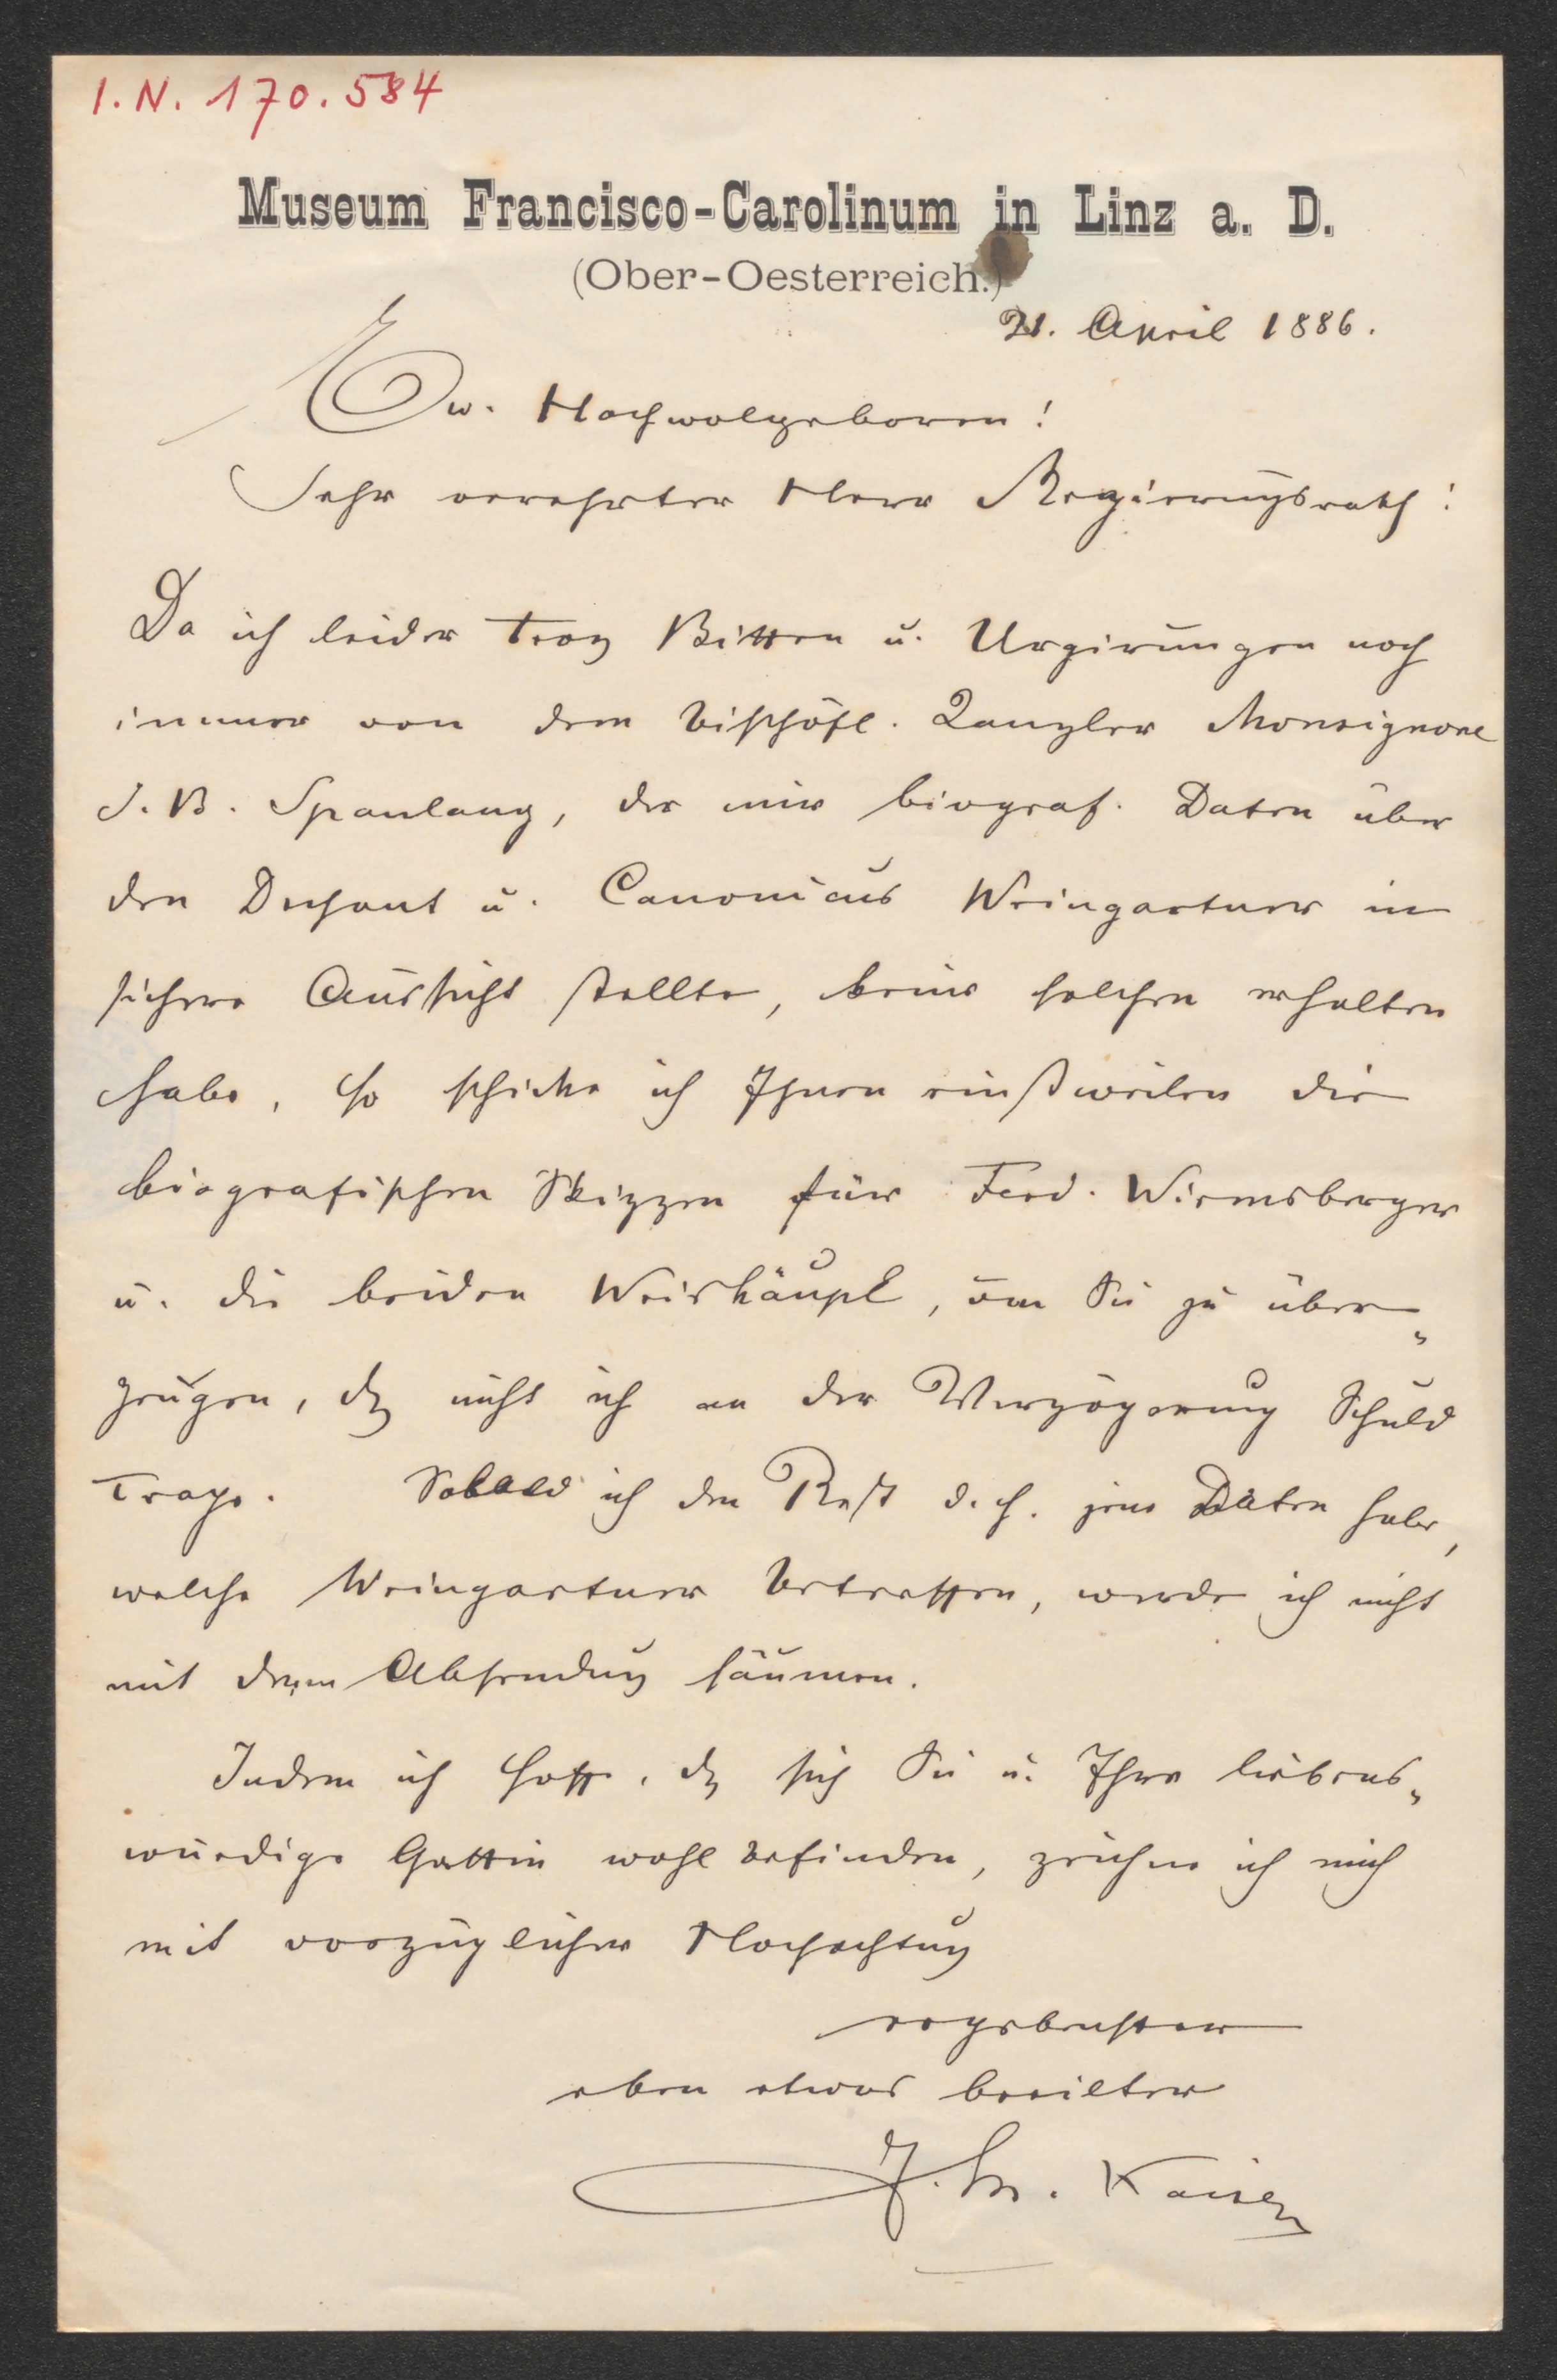 I. N. 170.584
Museum Francisco-Carolinum in Linz a. D.
(Ober-Oesterreich.)
21. April 1886.
Ew. Hochwolgeboren!
Sehr verehrter Herr Regierungsrath!
Da ich leider troz Bitten u. Urgirungen noch
immer von dem bischöfl. Kanzler Monsignore
J. B. Spanlang, der mir biograf. Daten über
den Dechant u. Canonicus Weingartner in
sichere Aussicht stellte, keine solchen erhalten
habe, so schicke ich Ihnen einstweilen die
biografischen Skizzen für Ferd. Wirmsberger
u. die beiden Weishäupl, um Sie zu über„
zeugen, dß nicht ich an der Verzögerung Schuld
trage. Sobald ich den Rest d. h. jene Daten habe,
welche Weingartner betreffen, werde ich nicht
mit deren Absendung säumen.
Indem ich hoffe, dß sich Sie u. Ihre liebens„
würdige Gattin wohl befinden, zeichne ich mich
mit vorzüglicher Hochachtung
ergebenster
eben etwas beeilter
J. M. Kaiser